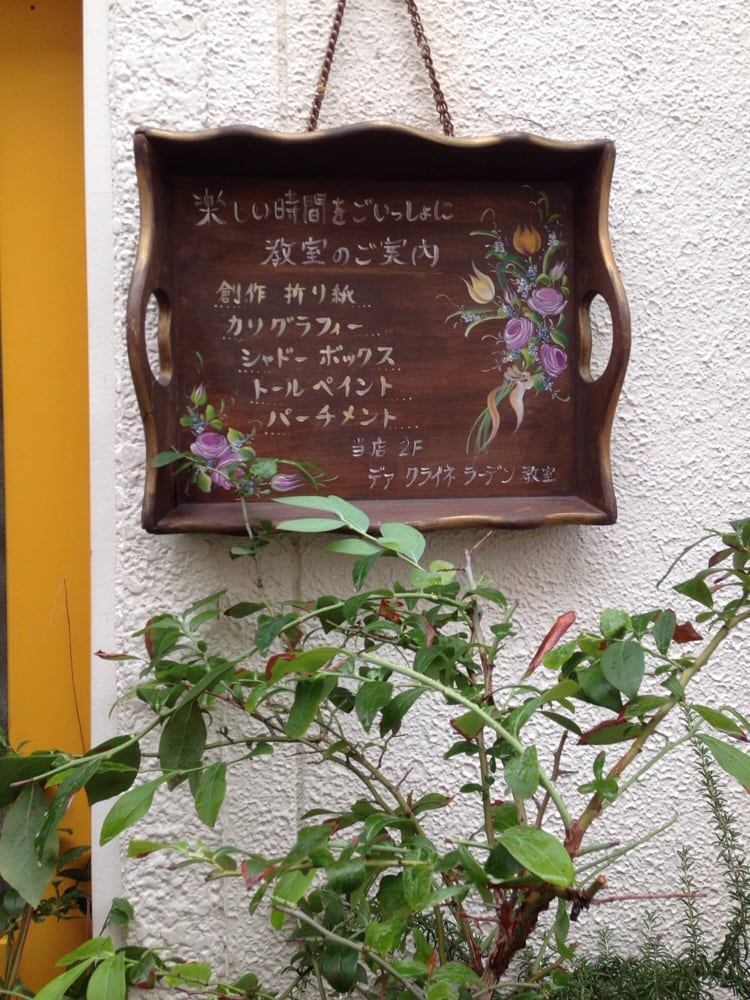 楽しい時間をごいっしょに
教室のご案内
創作 折り紙
カリグラフィー
シャドー ボックス
トール ペイント
パーチメント
当店 2F
デァ クライネ ラーデン 教室